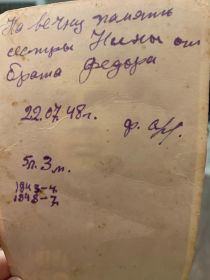 На вечну память
сестры Нины от
брата Федора
22.07.48г.
5л. 3м.
1943-4.
1948-7.